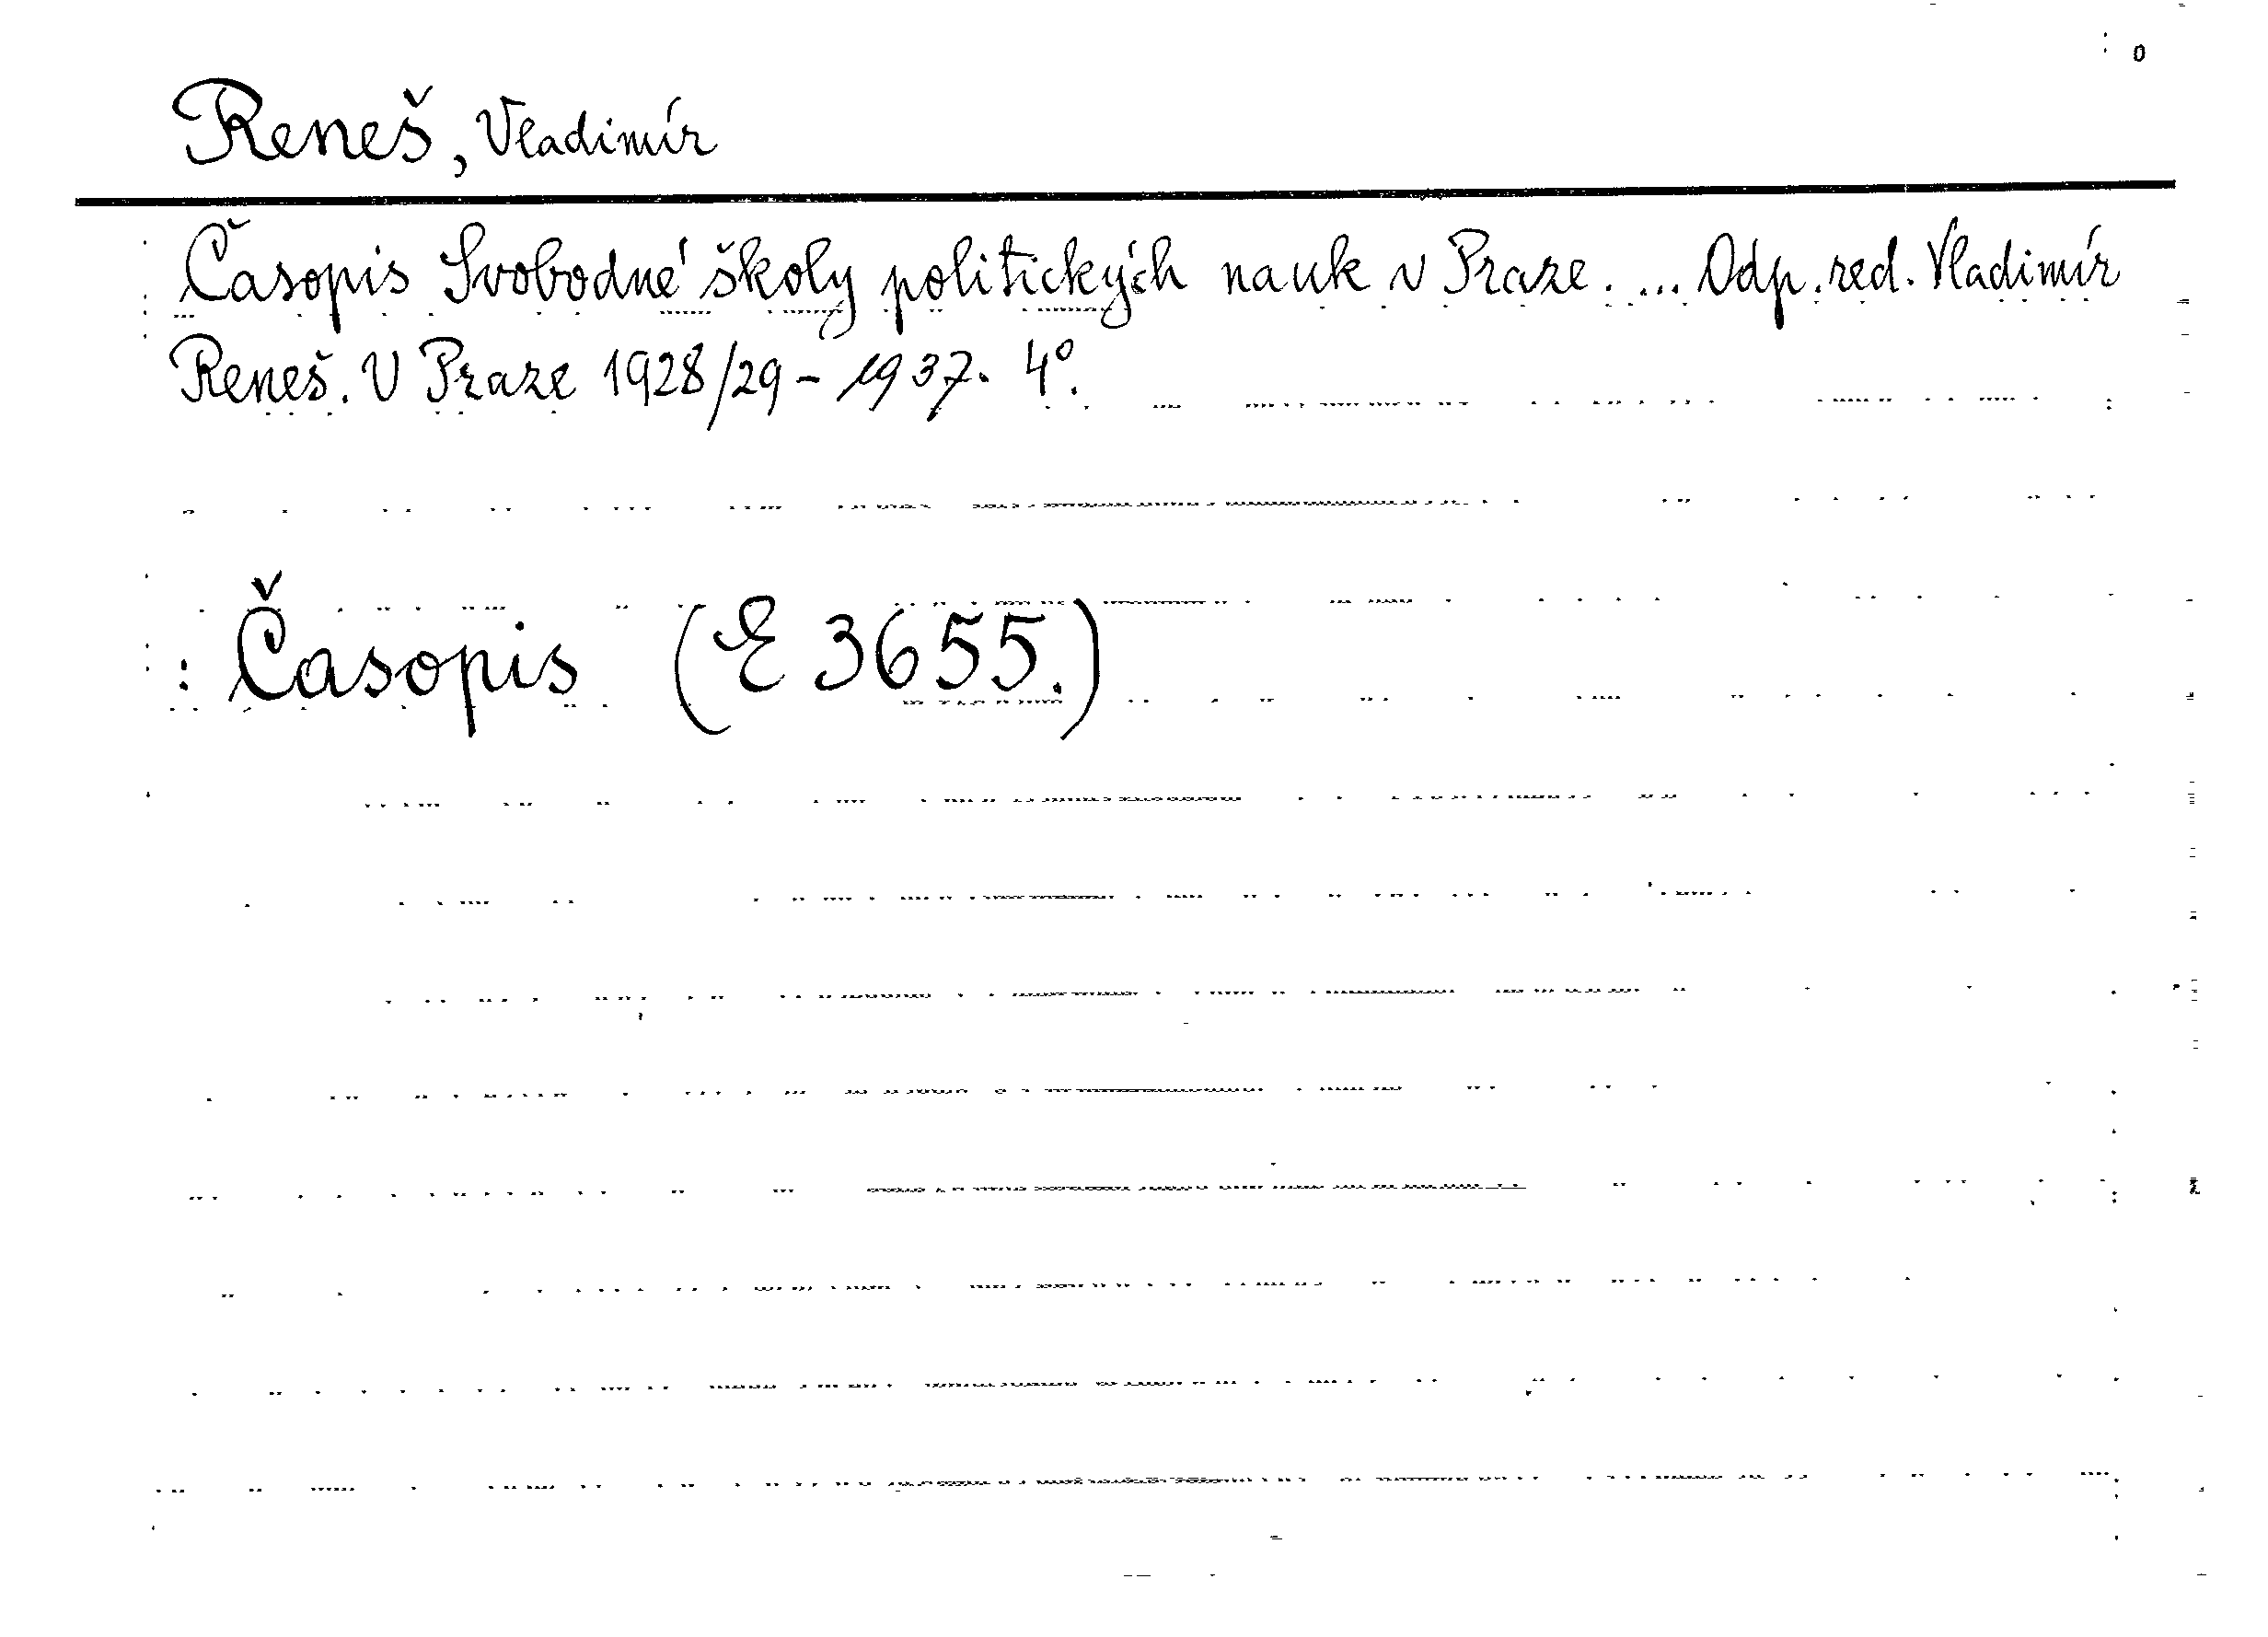 Reneš, Vladimír
Časopis Svobodné školy politických nauk v Praze. ... Odp. red. Vladimír
Reneš. V Praze 1928/29 - 1937. 4°.
Časopis (E 3655.)